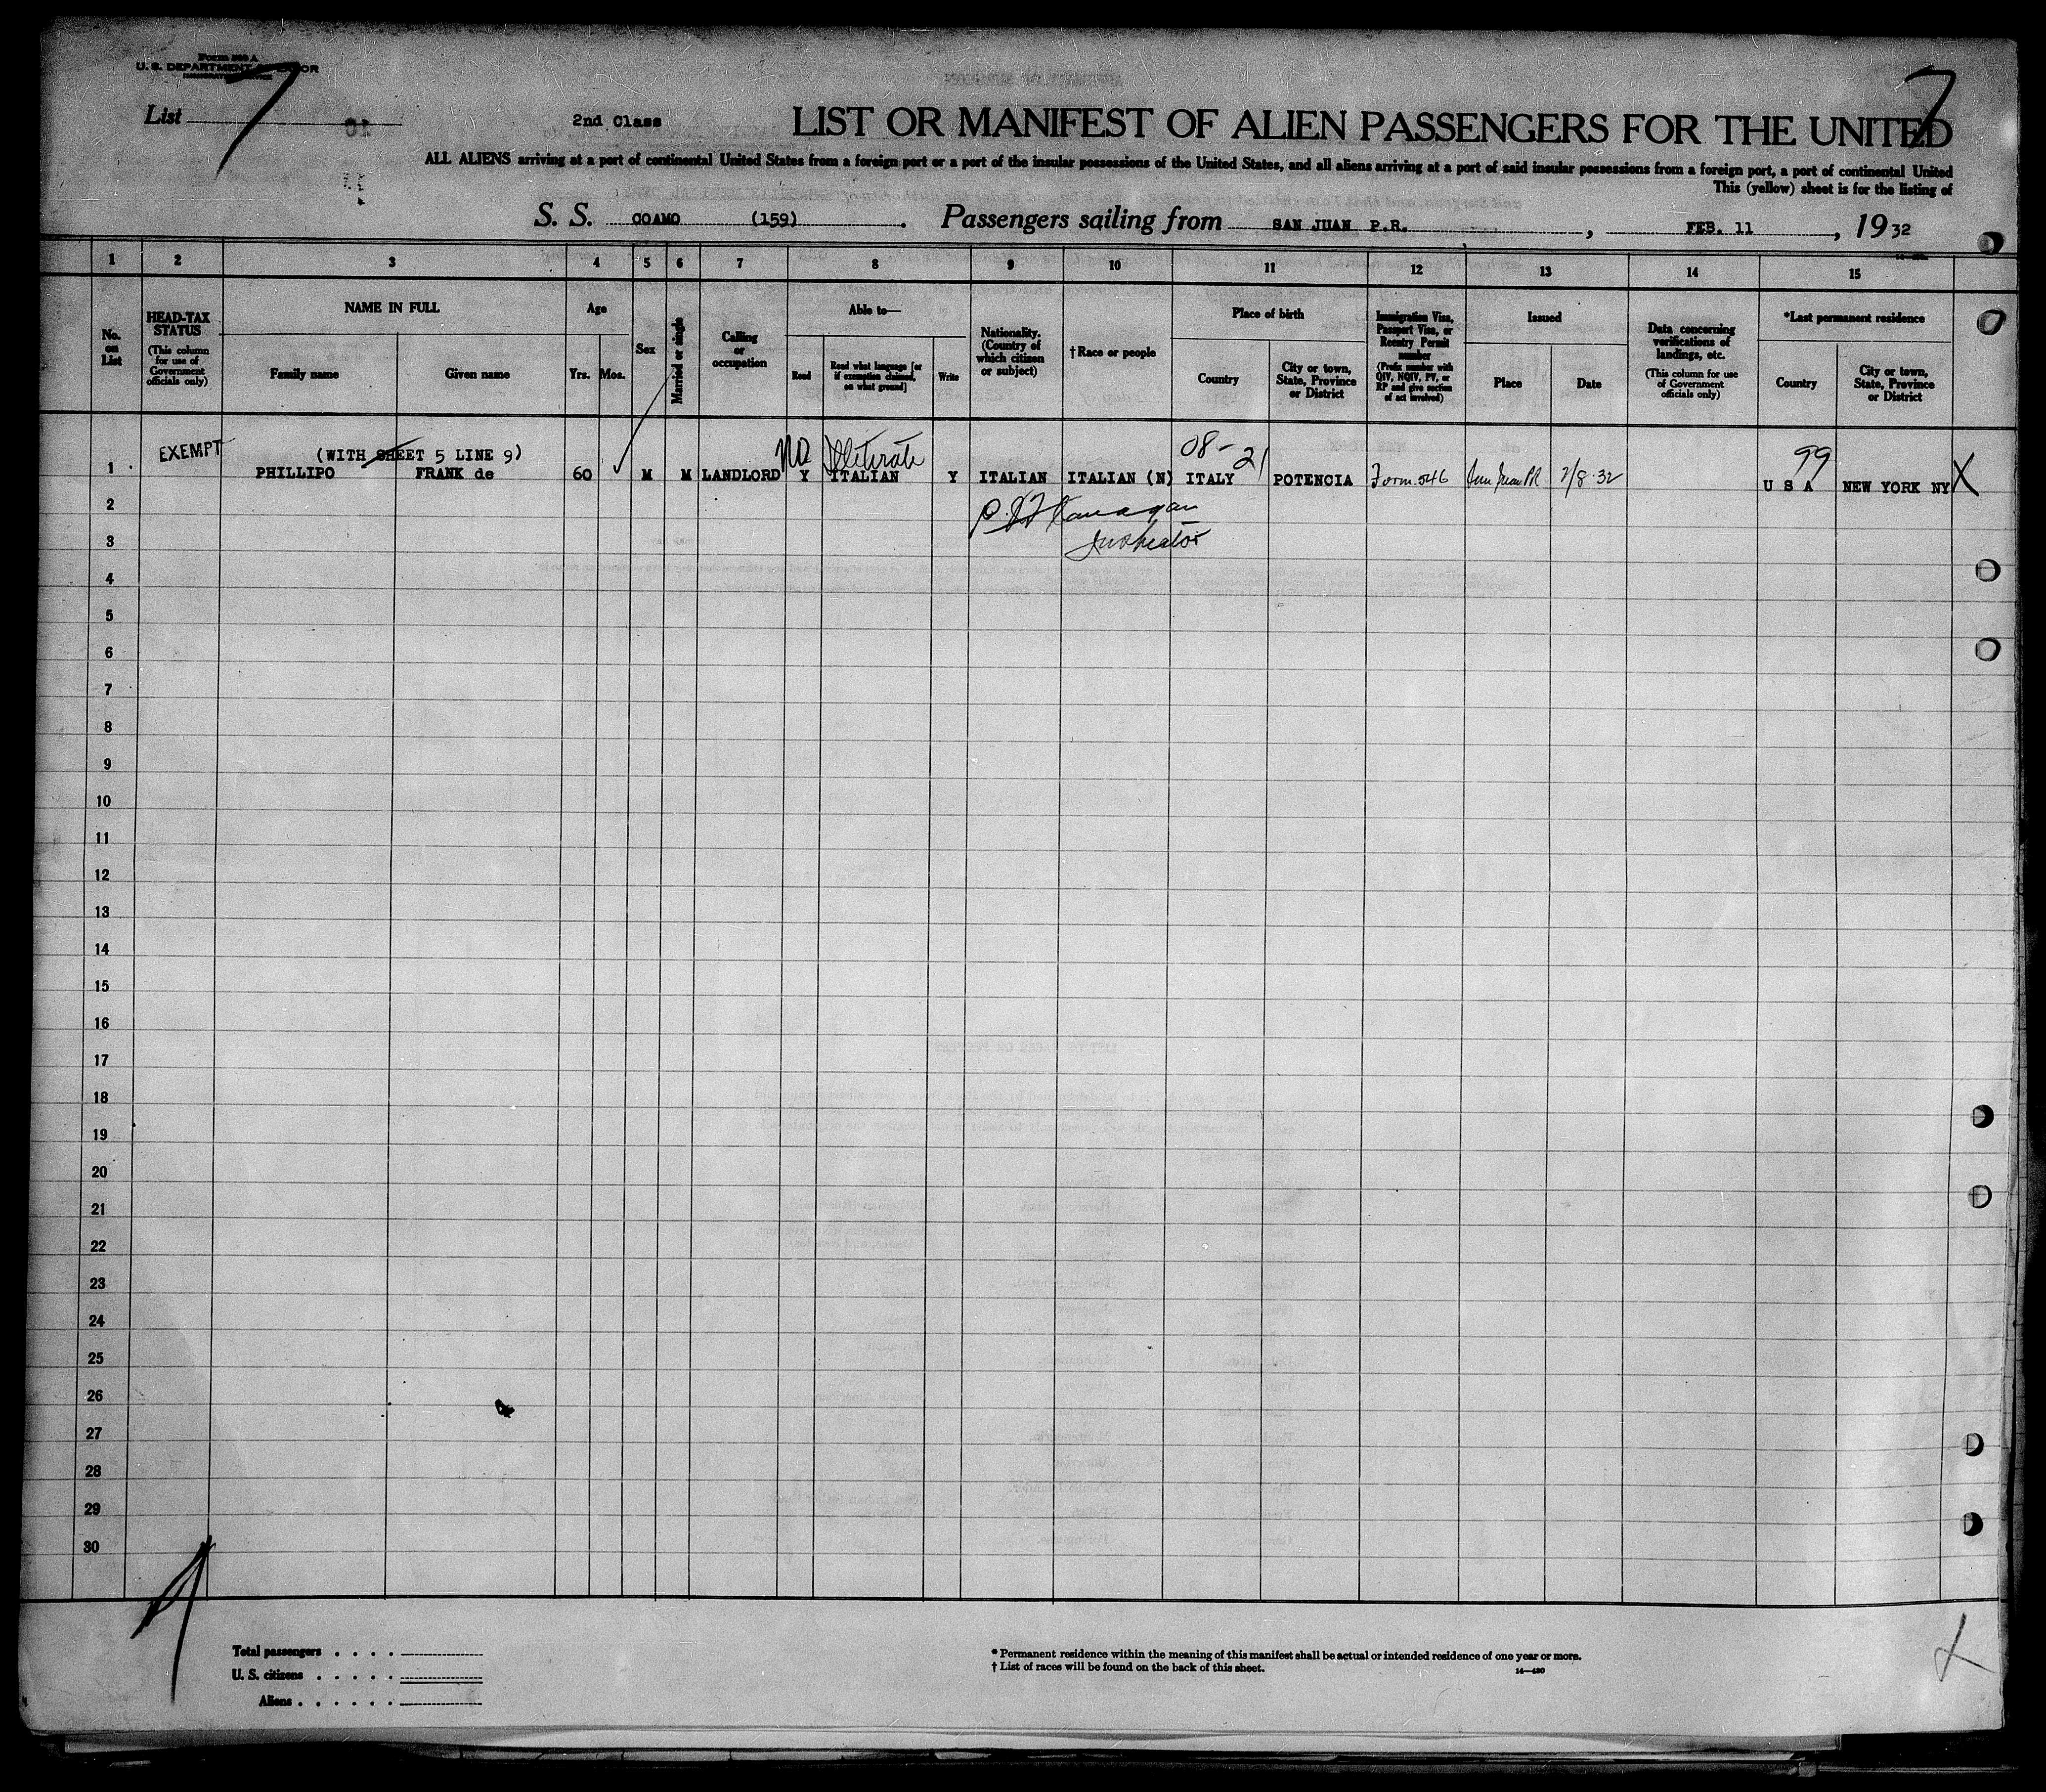 Form 500 A
U. S. DEPARTMENT OF LABOR
IMMIGRATION SERVICE
List 7
7
2nd Class
LIST OR MANIFEST OF ALIEN PASSENGERS FOR THE UNITED
ALL ALIENS arriving at a port of continental United States from a foreign port or a port of the insular possessions of the United States, and all aliens arriving at a port of said insular possessions from a foreign port, a port of continental United
This (yellow) sheet is for the listing of
S. S. COAMO (159). Passengers sailing from SAN JUAN P.R., FEB. 11, 1932
1 2 3 4 5 6 7 8 9 10 11 12 13 14 15
No. on List
HEAD-TAX STATUS
(This column for use of Government officials only)
NAME IN FULL
Family name
Given name
Age
Yrs. Mos.
Sex
Married or single
Calling or occupation
Able to—
Read
Read what language [or if exemption claimed, on what ground]
Write
Nationality. (Country of which citizen or subject)
†Race or people
Place of birth
Country
City or town, State, Province or District
Immigration Visa, Passport Visa, or Reentry Permit number
(Prefix number with QIV, NQIV, PV, or RP and give section of act involved)
Issued
Place
Date
Data concerning verifications of landings, etc.
(This column for use of Government officials only)
*Last permanent residence
Country
City or town, State, Province or District
EXEMPT (WITH SHEET 5 LINE 9) NO Illiterate 08-21 99
1 PHILLIPO FRANK de 60 M M LANDLORD Y ITALIAN Y ITALIAN ITALIAN (N) ITALY POTENCIA Form 546 San Juan PR 2/8-32 U S A NEW YORK NY X
2 Flanagan
3 Inspector
4
5
6
7
8
9
10
11
12
13
14
15
16
17
18
19
20
21
22
23
24
25
26
27
28
29
30
Total passengers
U. S. citizens
Aliens
* Permanent residence within the meaning of this manifest shall be actual or intended residence of one year or more.
† List of races will be found on the back of this sheet.
14—430